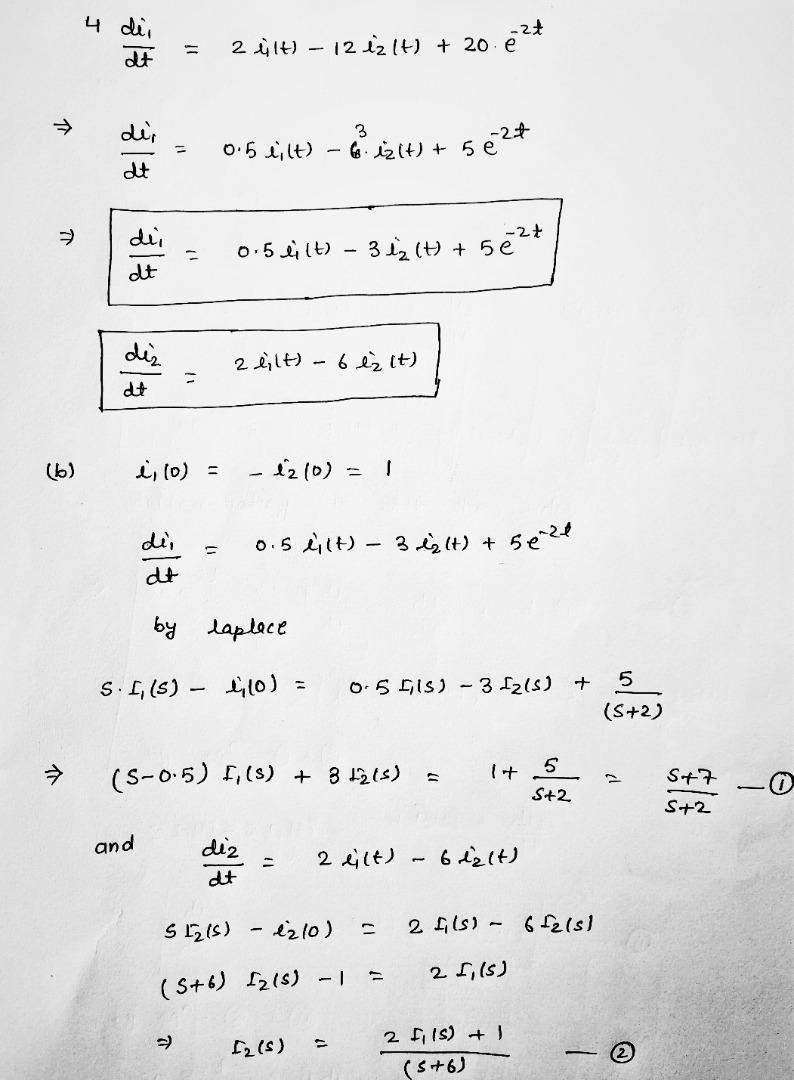 4 di₁/dt = 2 i₁(t) – 12 i₂(t) + 20 · e^(-2t)
⇒ di₁/dt = 0.5 i₁(t) – 3 · i₂(t) + 5 e^(-2t)
⇒ di₁/dt = 0.5 i₁(t) – 3 i₂(t) + 5 e^(-2t)
di₂/dt = 2 i₁(t) – 6 i₂(t)
(b) i₁(0) = – i₂(0) = 1
di₁/dt = 0.5 i₁(t) – 3 i₂(t) + 5 e^(-2t)
by laplace
S · I₁(S) – i₁(0) = 0.5 I₁(S) – 3 I₂(S) + 5/(S+2)
⇒ (S–0.5) I₁(S) + 3 I₂(S) = 1 + 5/(S+2) = (S+7)/(S+2) — ①
and di₂/dt = 2 i₁(t) – 6 i₂(t)
S I₂(S) – i₂(0) = 2 I₁(S) – 6 I₂(S)
(S+6) I₂(S) – 1 = 2 I₁(S)
⇒ I₂(S) = (2 I₁(S) + 1)/(S+6) — ②